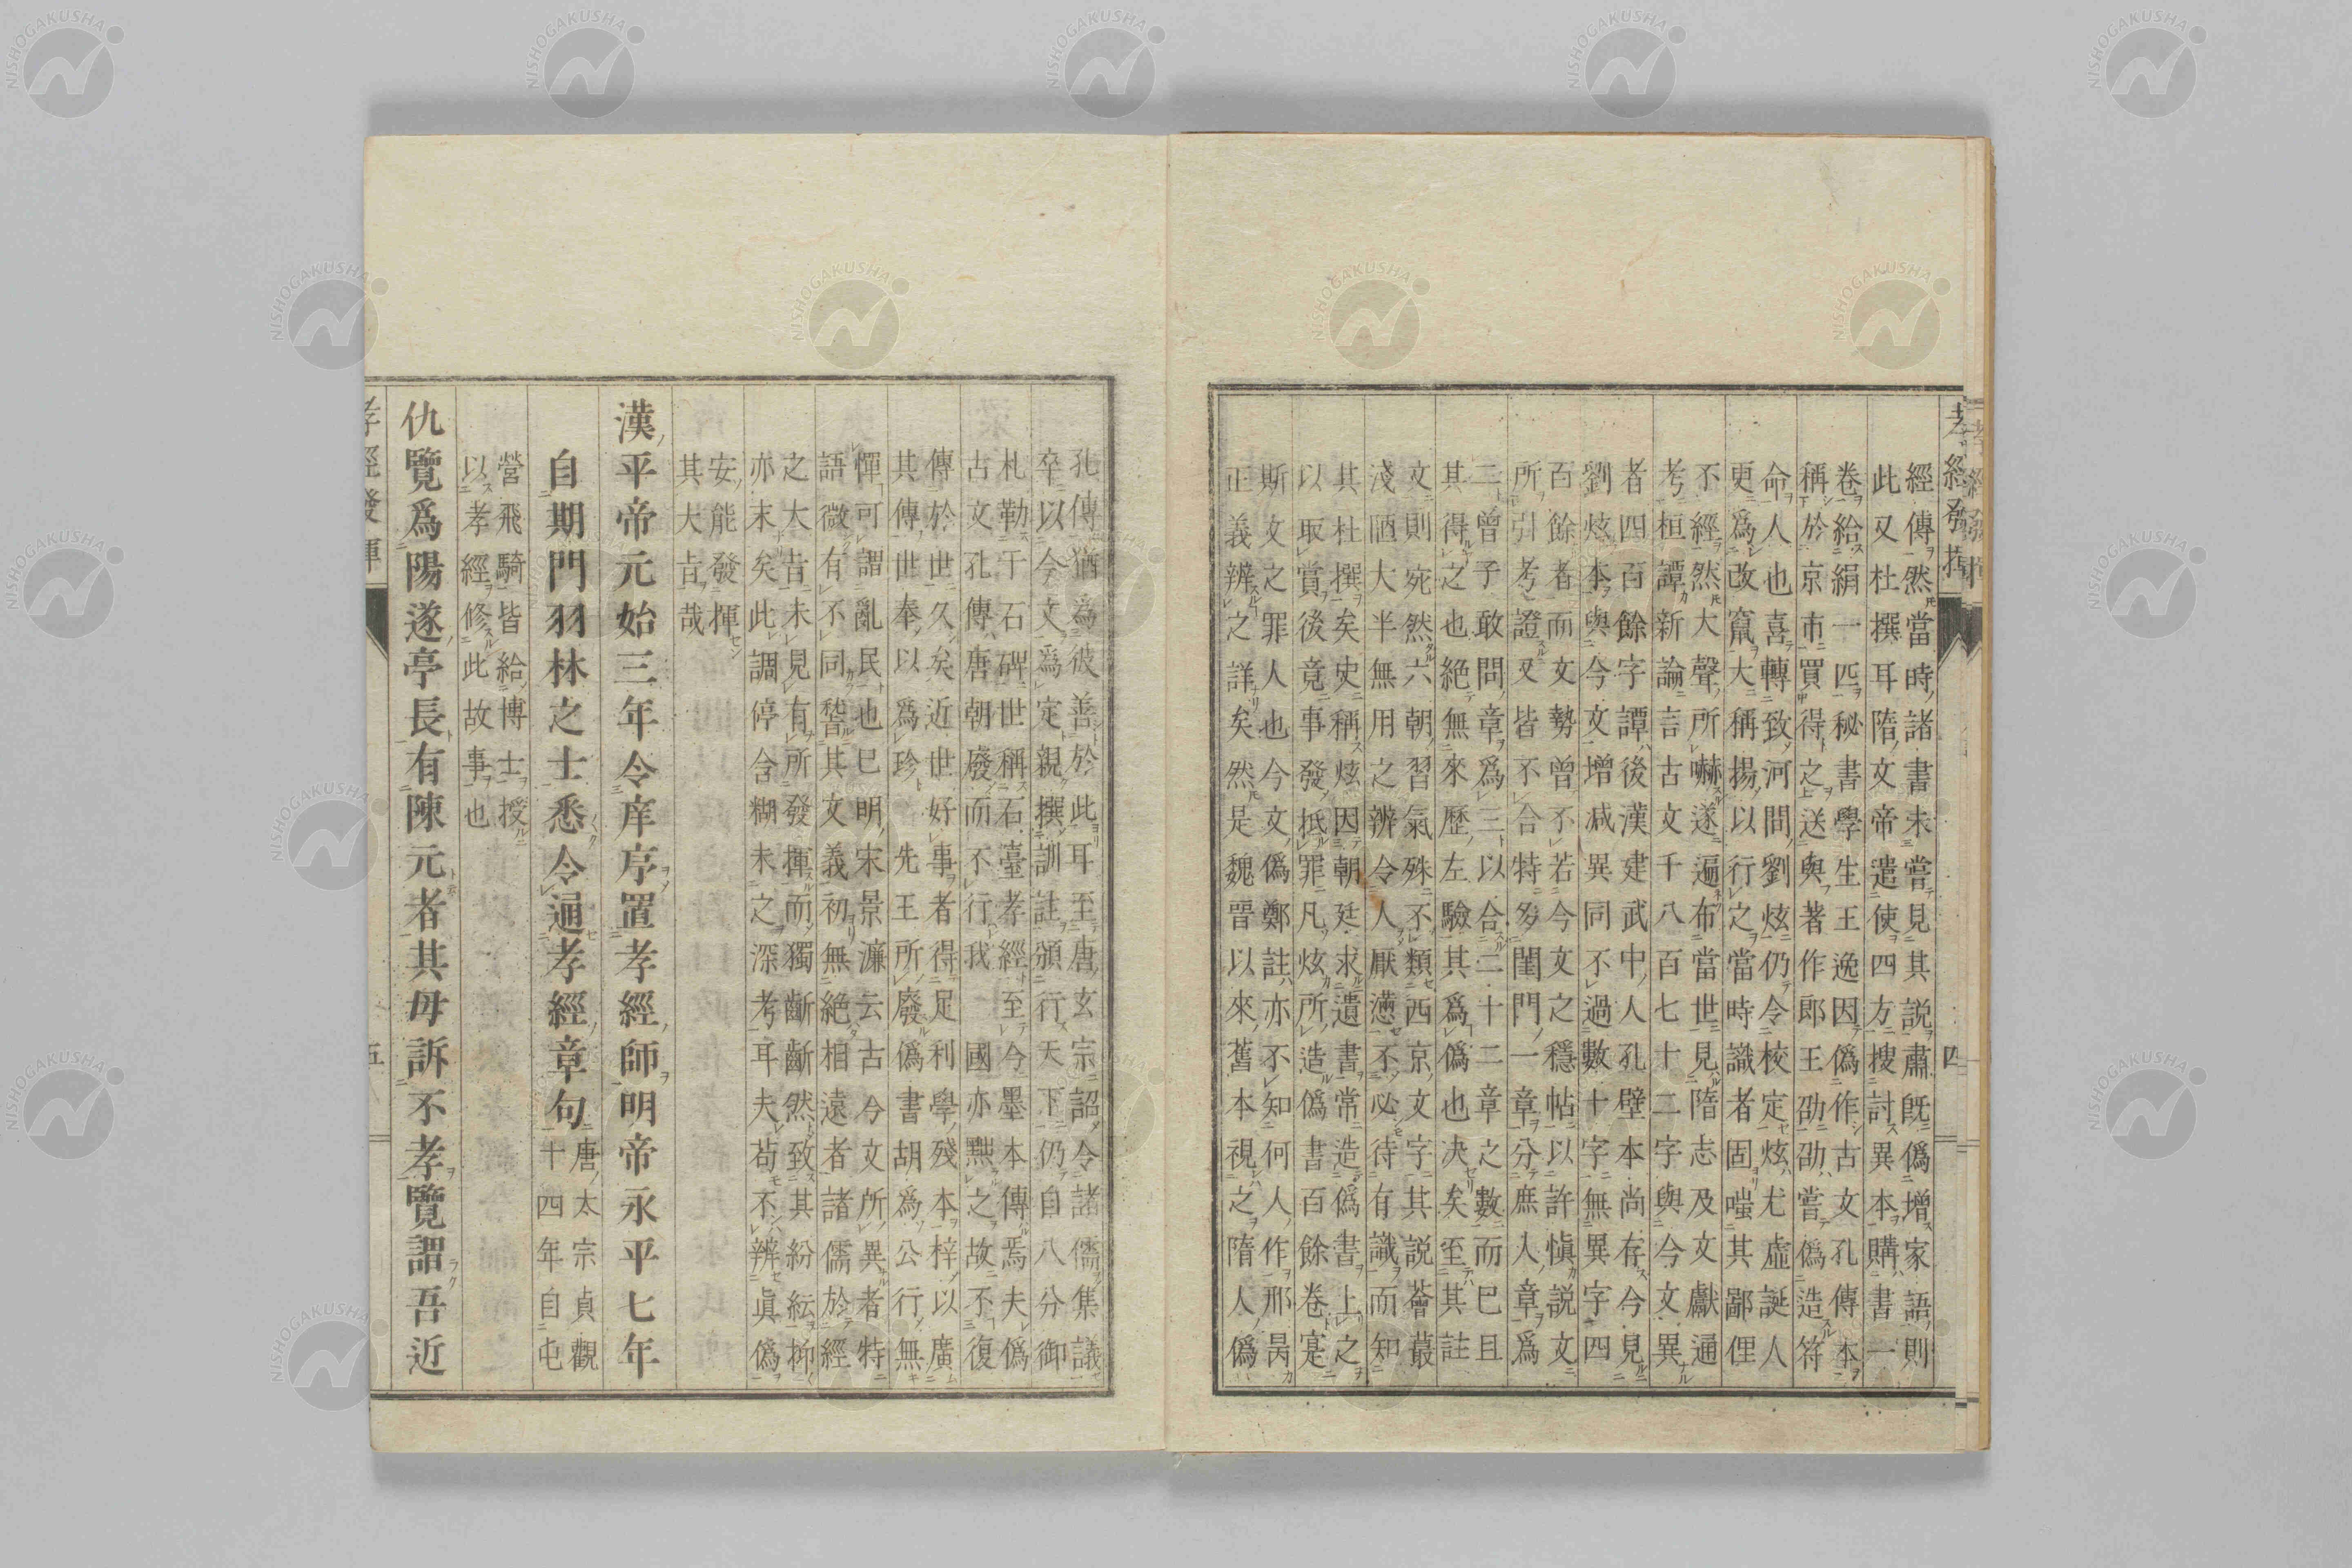 經傳然當時諸書未嘗見其説肅既僞增家語則
此又杜撰耳隋文帝遣使四方搜討異本購書一
卷給絹一匹秘書學生王逸因僞作古文孔傳本
稱於京市買得之送與著作郎王劭劭嘗僞造符
命人也喜轉致河間劉炫仍令校定炫尤虛誕人
更爲改竄大稱揚以行之當時識者固嗤其鄙俚
不經然大聲所嚇遂遍布當世見隋志及文獻通
考桓譚新論言古文千八百七十二字與今文異
者四百餘字譚後漢建武中人孔壁本尚存今見
劉炫本與今文增减異同不過數十字無異字四
百餘者而文勢曾不若今文之穩帖以許愼説文
所引考證又皆不合特多閨門一章分庶人章爲
二曾子敢問章爲三以合二十二章之數而巳且
其得之也絶無來歷左驗其爲僞也决矣至其註
文則宛然六朝習氣殊不類西京文字其説薈蕞
淺陋大半無用之辨令人厭懣不必待有識而知
其杜撰矣史稱炫因朝廷求遺書常造僞書上之
以取賞後竟事發抵罪凡炫所造僞書百餘卷寔
斯文之罪人也今文僞鄭註亦不知何人作邢昺
正義辨之詳矣然是魏晉以來舊本視之隋人僞
孝經發揮
四
孔傳猶爲彼善於此耳至唐玄宗詔令諸儒集議
卒以今文爲定親撰訓註頒行天下仍自八分御
札勒于石碑世稱石臺孝經至今墨本傳焉夫僞
古文孔傳唐朝廢而不行我 國亦黜之故不復
傳於世世久矣近世好事者得足利學殘本梓以廣
其傳世奉以爲珍先王所廢僞書胡爲公行無
憚可謂亂民也巳明宋景濂云古今文所異者特
語微有不同稽其文義初無絶相遠者諸儒於經
之大旨未見有所發揮而獨齗齗然致其紛紜抑
亦末矣此調停含糊未之深考耳夫苟不辨眞僞
安能發揮
其大旨哉
漢平帝元始三年令庠序置孝經師明帝永平七年
自期門羽林之士悉令通孝經章句唐太宗貞觀
十四年自屯
營飛騎皆給博士授
以孝經修此故事也
仇覽爲陽遂亭長有陳元者其母訴不孝覽謂吾近
孝經發揮
五